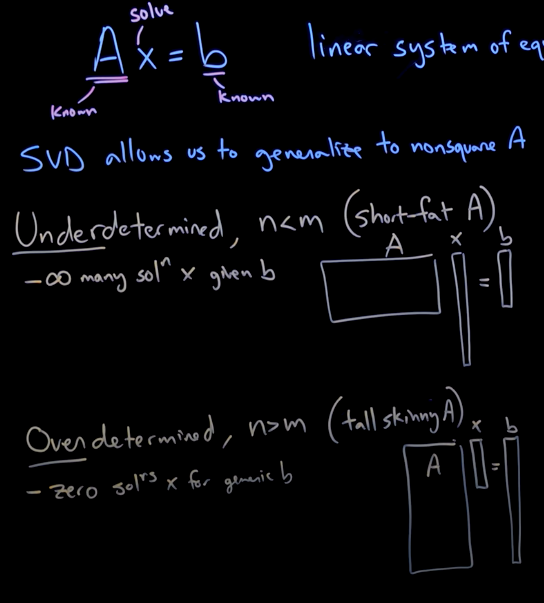 solve
A x = b
linear system of eq
Known
Known
SVD allows us to generalize to nonsquare A
Underdetermined, n<m (short-fat A)
A x b
- ∞ many solⁿ x given b
=
Overdetermined, n>m (tall skinny A)
x b
A =
- zero solⁿs x for generic b